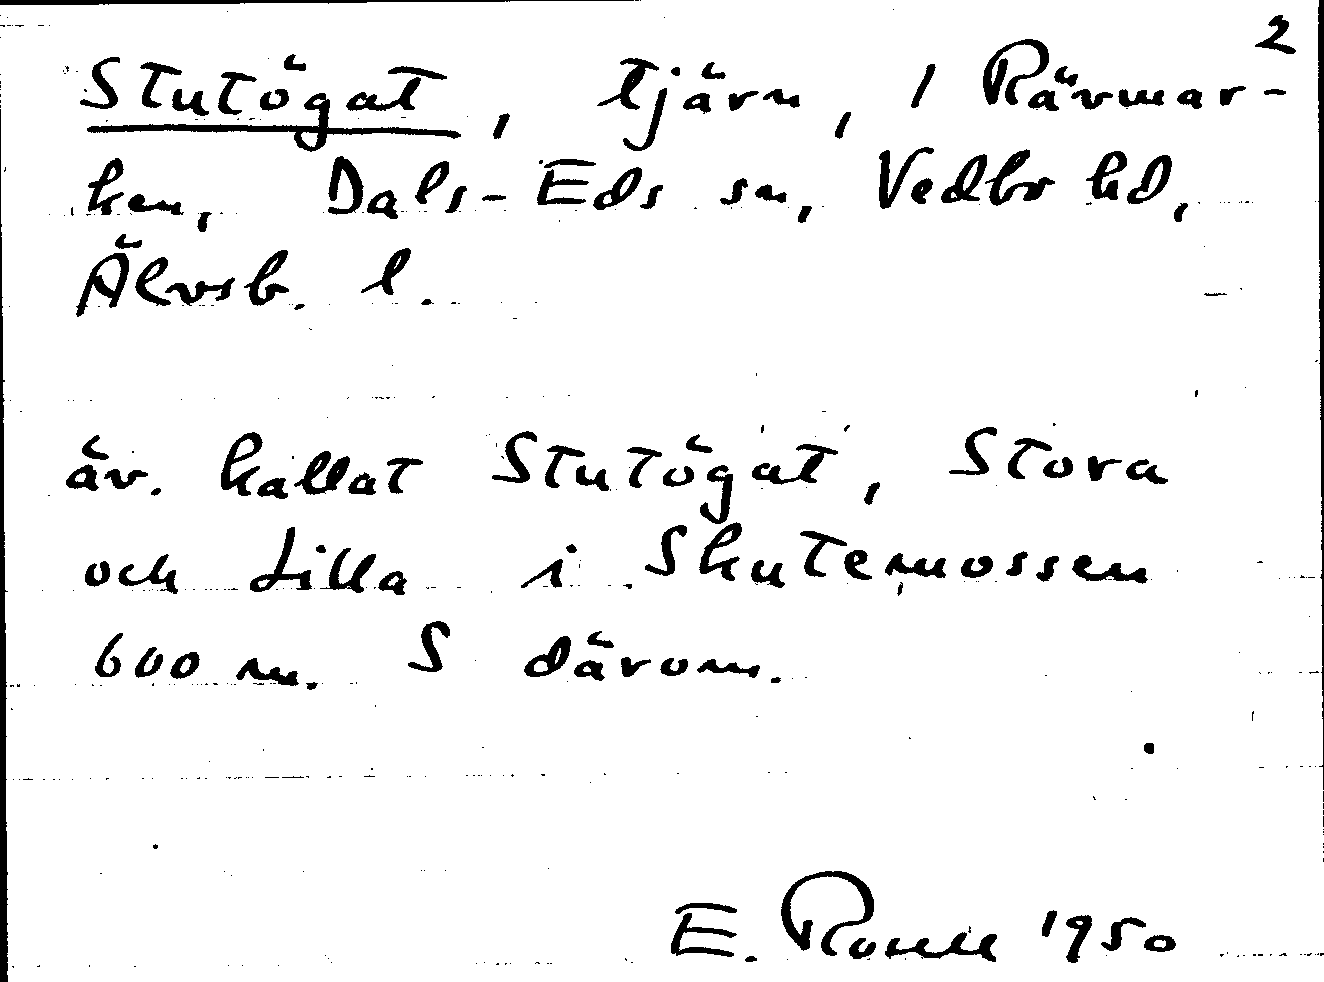 2
Stutögat, tjärn, 1 Rävmar-
ken, Dals-Eds sn, Vedbo hd,
Älvsb. l.
äv. kallat Stutögat, Stora
och Lilla i Skutemossen
600 m. S därom.
E. 1950